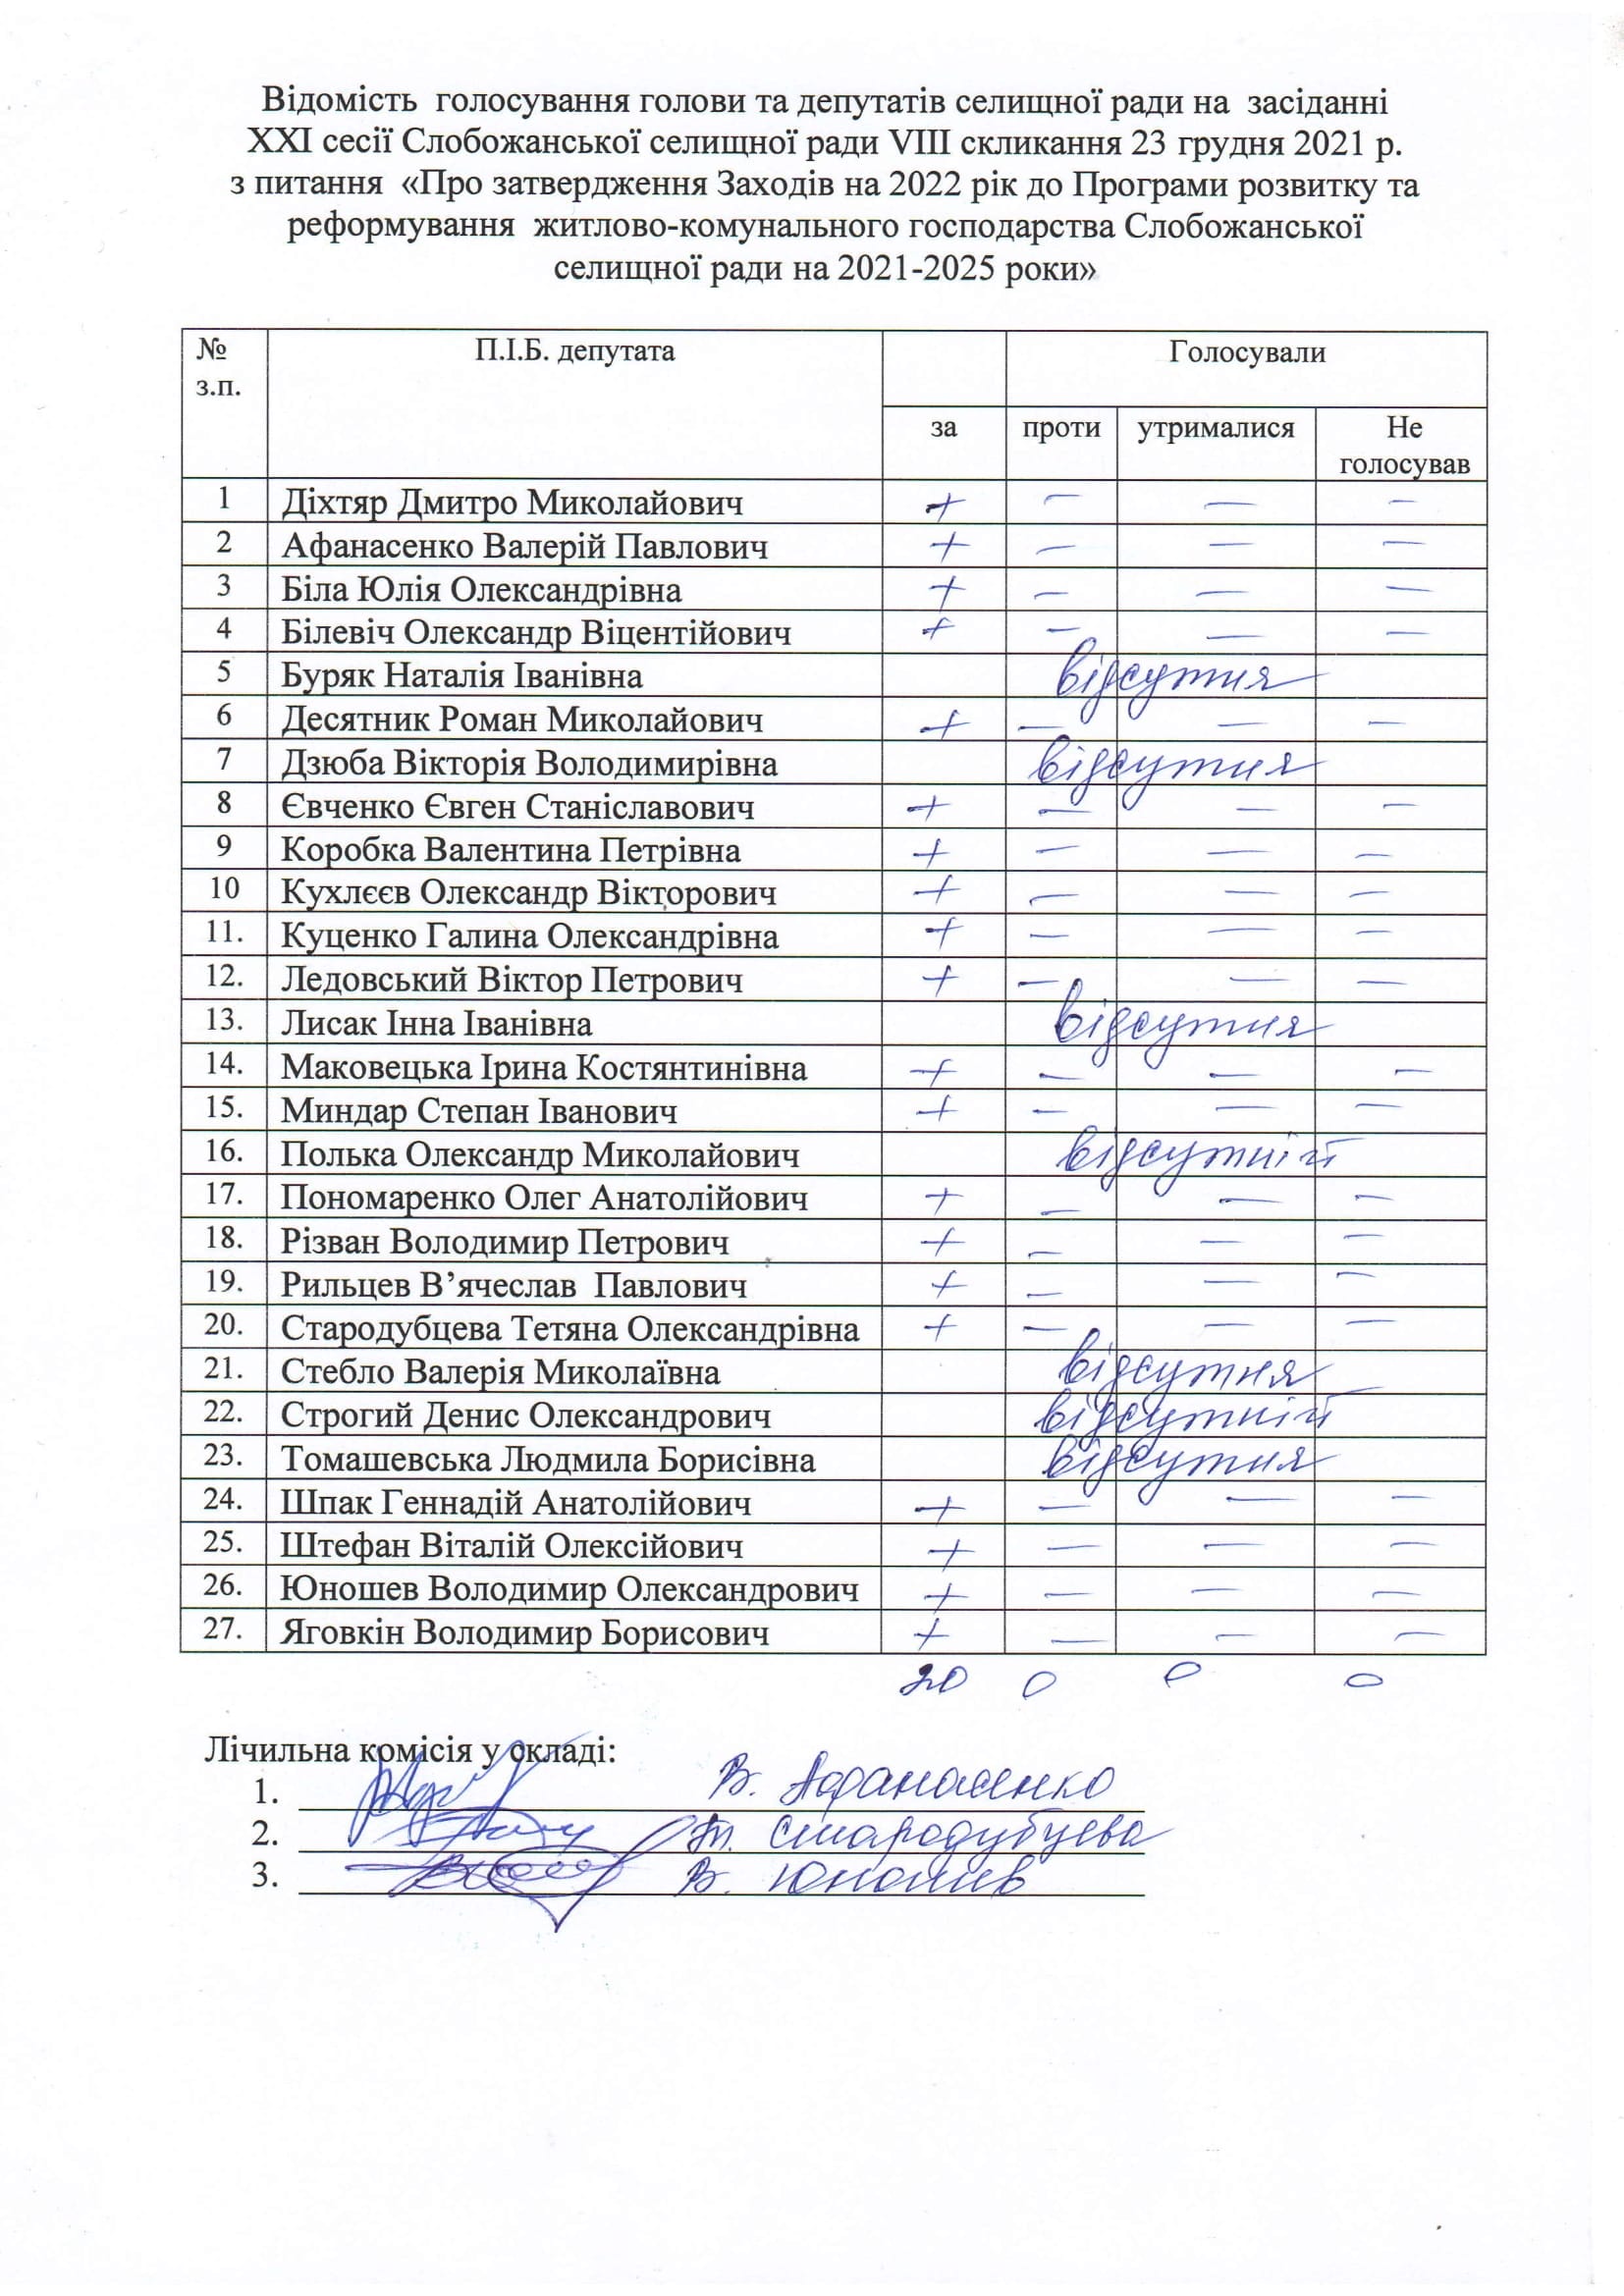 Відомість голосування голови та депутатів селищної ради на засіданні
XXI сесії Слобожанської селищної ради VIII скликання 23 грудня 2021 р.
з питання «Про затвердження Заходів на 2022 рік до Програми розвитку та
реформування житлово-комунального господарства Слобожанської
селищної ради на 2021-2025 роки»
№ з.п. П.І.Б. депутата Голосували
за проти утрималися Не голосував
1 Діхтяр Дмитро Миколайович + — — —
2 Афанасенко Валерій Павлович + — — —
3 Біла Юлія Олександрівна + — — —
4 Білевіч Олександр Віцентійович + — — —
5 Буряк Наталія Іванівна відсутня
6 Десятник Роман Миколайович + — — —
7 Дзюба Вікторія Володимирівна відсутня
8 Євченко Євген Станіславович + — — —
9 Коробка Валентина Петрівна + — — —
10 Кухлєєв Олександр Вікторович + — — —
11. Куценко Галина Олександрівна + — — —
12. Ледовський Віктор Петрович + — — —
13. Лисак Інна Іванівна відсутня
14. Маковецька Ірина Костянтинівна + — — —
15. Миндар Степан Іванович + — — —
16. Полька Олександр Миколайович відсутній
17. Пономаренко Олег Анатолійович + — — —
18. Різван Володимир Петрович + — — —
19. Рильцев В’ячеслав Павлович + — — —
20. Стародубцева Тетяна Олександрівна + — — —
21. Стебло Валерія Миколаївна відсутня
22. Строгий Денис Олександрович відсутній
23. Томашевська Людмила Борисівна відсутня
24. Шпак Геннадій Анатолійович + — — —
25. Штефан Віталій Олексійович + — — —
26. Юношев Володимир Олександрович + — — —
27. Яговкін Володимир Борисович + — — —
20 0 0 0
Лічильна комісія у складі:
1. В. Афанасенко
2. Т. Стародубцева
3. В. Юношев